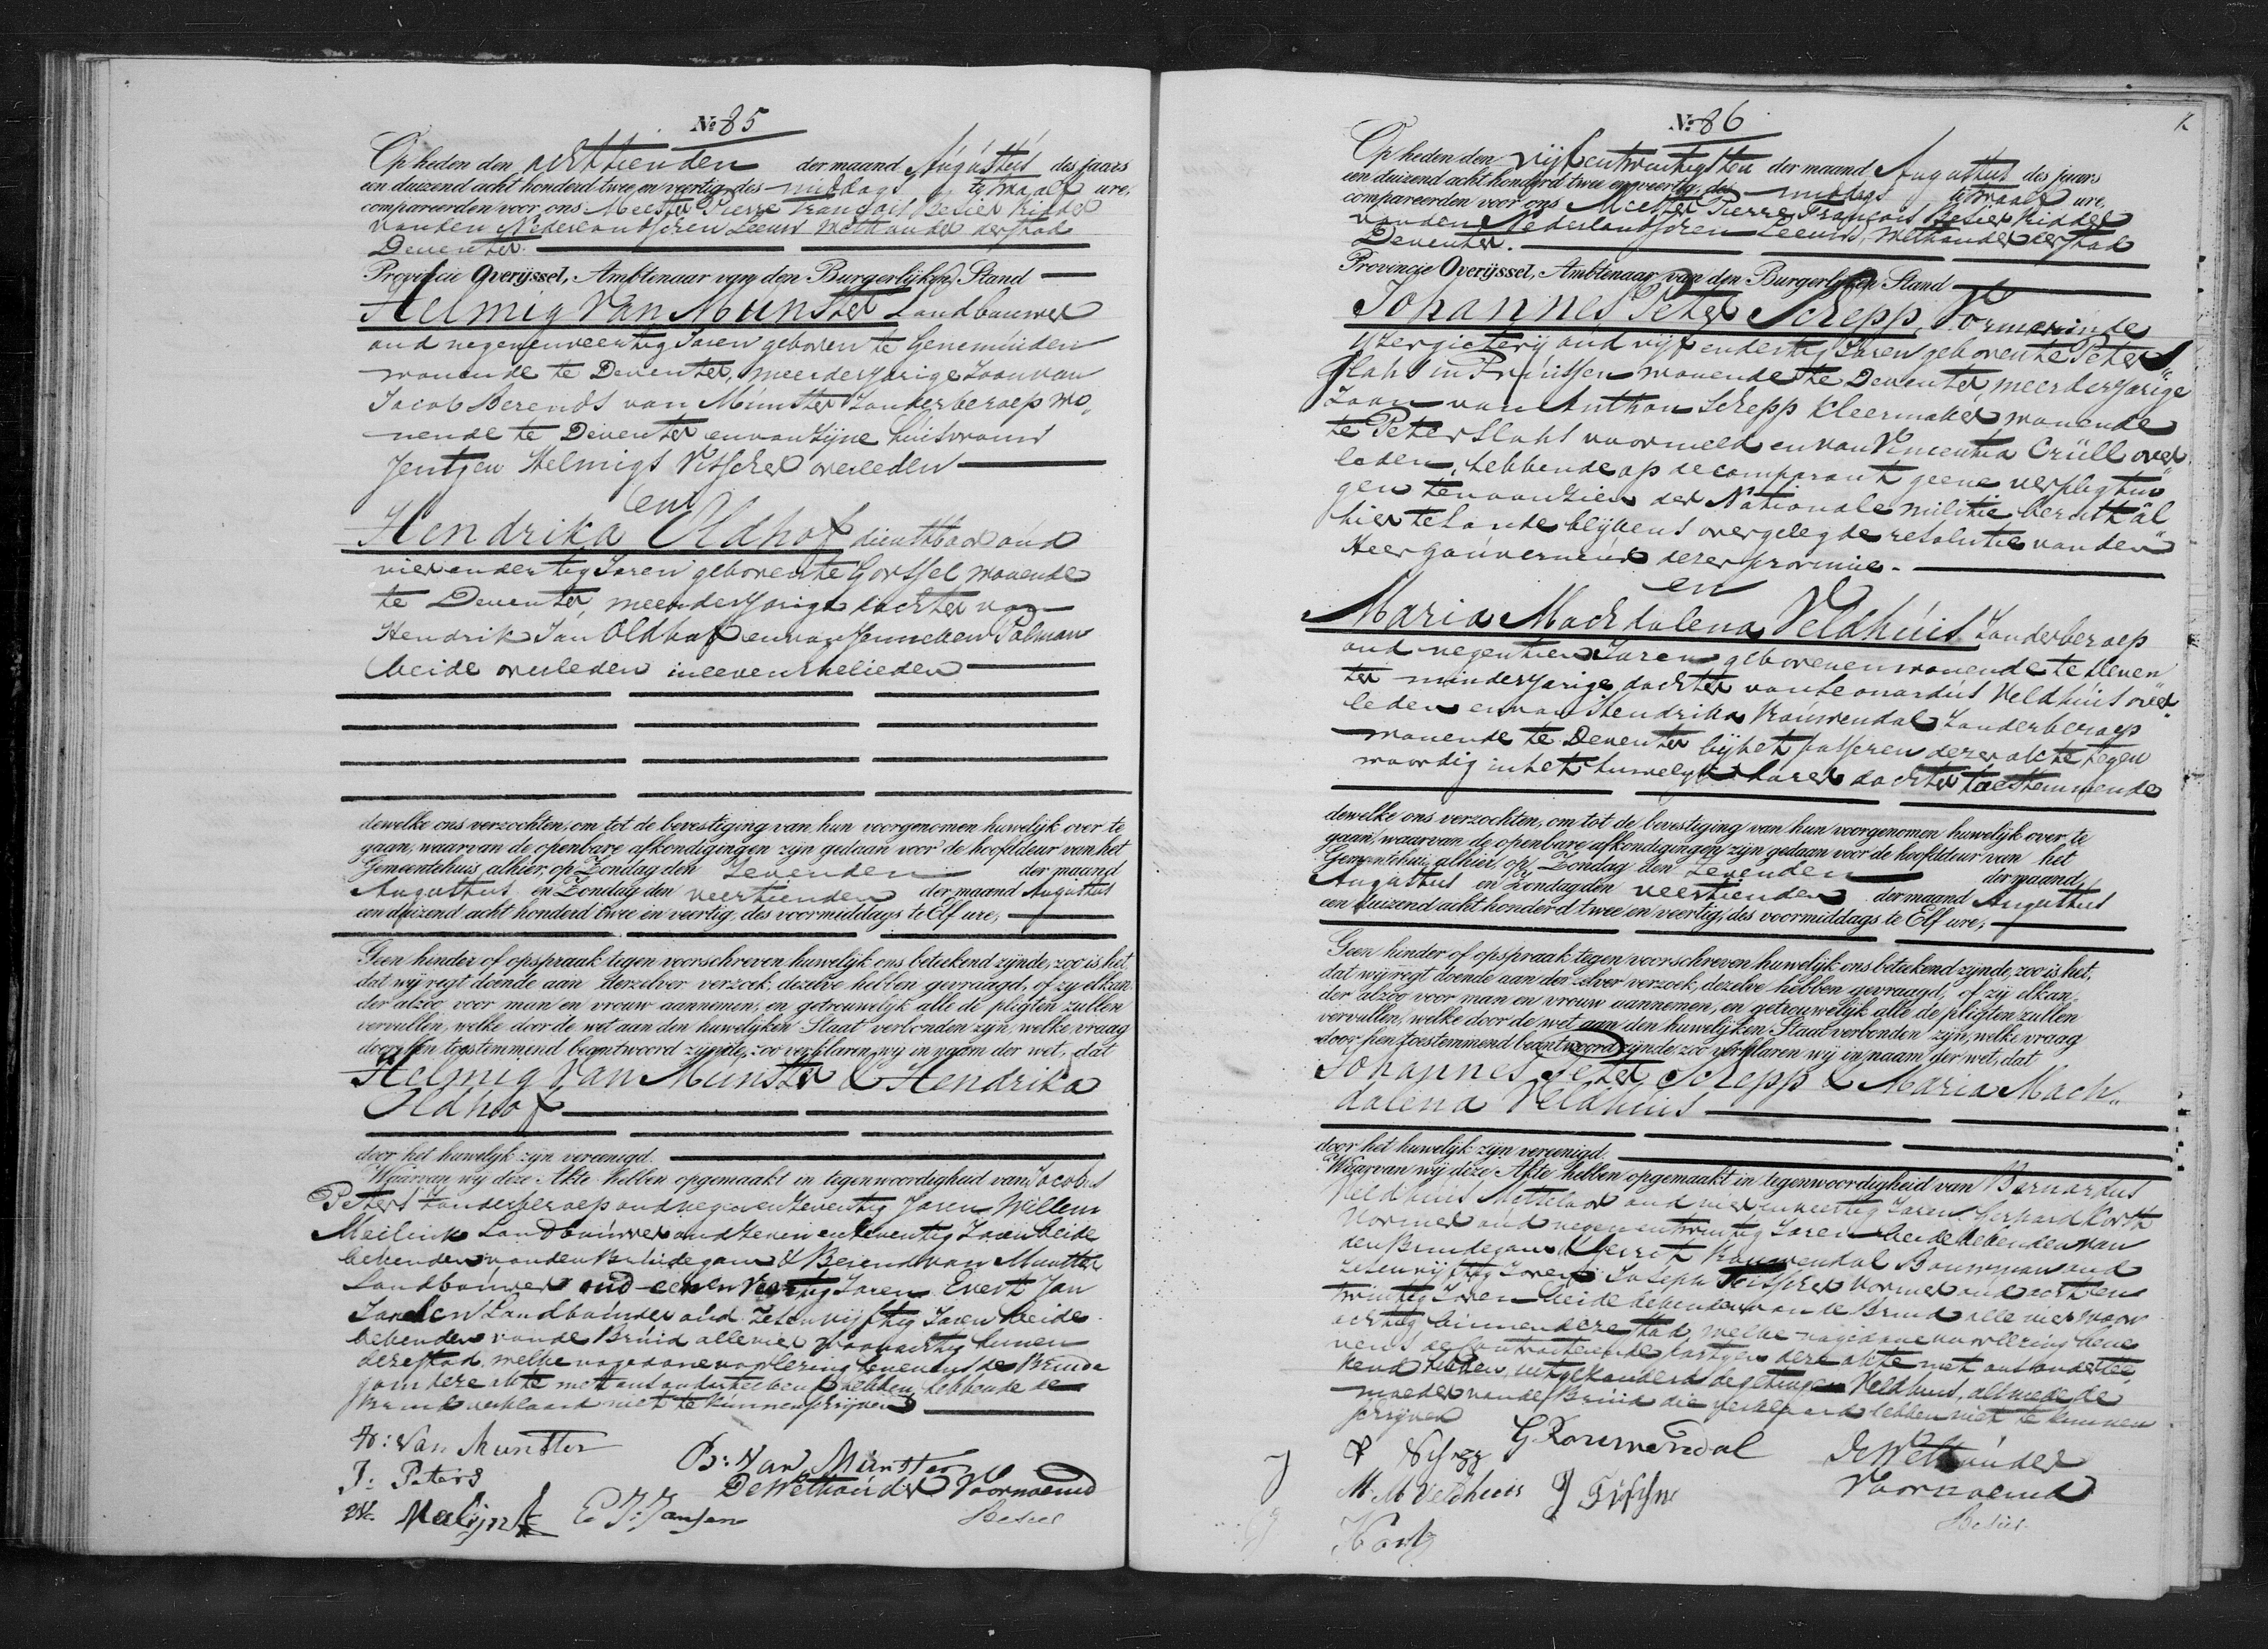 № 85
Op heden den achttienden der maand Augustus des jaars
een duizend acht honderd twee en veertig, des middags te twaalf ure,
compareerden voor ons Meester Pierre François Besier Ridder
van den Nederlandschen Leeuw Wethouder der stad
Deventer
Provincie Overijssel, Ambtenaar van den Burgerlijken Stand
Helmig Van Munster Landbouwer
oud negenenveertig Jaren geboren te Genemuiden
wonende te Deventer, meerderjarige Zoon van
Jacob Berends van Munster Zonder beroep wo
nende te Deventer en van zijne huisvrouw
Jentjen Helmigs Visscher overleden
en
Hendrika Oldhof dienstbaar oud
vierendertig Jaren geboren te Gorssel wonende
te Deventer, meerderjarige dochter van
Hendrik Jan Oldhof en van Janneken Palman
beide overleden in leven Ehelieden
dewelke ons verzochten, om tot de bevestiging van hun voorgenomen huwelijk over te
gaan, waarvan de openbare afkondigingen zijn gedaan voor de hoofddeur van het
Gemeentehuis alhier, op Zondag den Zevenden der maand
Augustus en Zondag den veertienden der maand Augustus
een duizend acht honderd twee en veertig, des voormiddags te Elf ure;
Geen hinder of opspraak tegen voorschreven huwelijk ons beteekend zijnde, zoo is het,
dat wij regt doende aan derzelver verzoek, dezelve hebben gevraagd, of zij elkan-
der alzoo voor man en vrouw aannemen, en getrouwelijk alle de pligten zullen
vervullen, welke door de wet aan den huwelijken Staat verbonden zijn, welke vraag
door hen toestemmend beantwoord zijnde, zoo verklaren wij in naam der wet, dat
Helmig Van Munster & Hendrika
Oldhof
door het huwelijk zijn vereenigd.
Waarvan wij deze Akte hebben opgemaakt in tegenwoordigheid van Jacobus
Peters Zonder beroep oud negenenzeventig Jaren Willem
Meilink Landbouwer oud zevenenzeventig Jaren beide
bekenden van den Bruidegom & Berend van Munster
Landbouwer oud eenenveertig Jaren Evert Jan
Jansen Landbouwer oud zesenvijftig Jaren beide
bekenden van de Bruid alle vier woonachtig binnen
deze stad, welke na gedane voorlezing benevens de Bruide
gom deze akte met ons onderteekend hebben, hebbende de
Bruid verklaard niet te kunnen schrijven
H: Van Munster
B: Van Munster
J: Peters
De Wethouder Voornoemd
W. Meilijnk
E J: Jansen
Besier
№ 86
Op heden den vijfentwintigsten der maand Augustus des jaars
een duizend acht honderd twee en veertig, des middags te twaalf ure,
compareerden voor ons Meester Pierre François Besier Ridder
van den Nederlandschen Leeuw, Wethouder der stad
Deventer.
Provincie Overijssel, Ambtenaar van den Burgerlijken Stand
Johannes Peter Schepp, Vormer in de
Yzergieterij oud vijfendertig Jaren geboren te Peters
slaht in Pruissen wonende te Deventer, meerderjarige
Zoon van Anthon Schepp Kleermaker wonende
te Peterslaht voormeld en van Vincentia Crüll over
leden, hebbende op de comparant geene verpligtin
gen ten aanzien der Nationale militie berust al
hier te lande blijkens overgelegde resolutie van den
Heer Gouverneur dezer provincie.
en
Maria Machdalena Veldhuis Zonder beroep
oud negentien Jaren geboren en wonende te Deven
ter minderjarige dochter van Leonardus Veldhuis over
leden en van Hendrika Vrouwendal Zonder beroep
wonende te Deventer bij het passeren dezer akte tegen
woordig in het huwelyk harer dochter toestemmende
dewelke ons verzochten, om tot de bevestiging van hun voorgenomen huwelijk over te
gaan, waarvan de openbare afkondigingen zijn gedaan voor de hoofddeur van het
Gemeentehuis alhier, op Zondag den zevenden der maand
Augustus en Zondag den veertienden der maand Augustus
een duizend acht honderd twee en veertig, des voormiddags te Elf ure;
Geen hinder of opspraak tegen voorschreven huwelijk ons beteekend zijnde, zoo is het,
dat wij regt doende aan derzelver verzoek, dezelve hebben gevraagd, of zij elkan-
der alzoo voor man en vrouw aannemen, en getrouwelijk alle de pligten zullen
vervullen, welke door de wet aan den huwelijken Staat verbonden zijn, welke vraag
door hen toestemmend beantwoord zijnde, zoo verklaren wij in naam der wet, dat
Johannes Peter Schepp & Maria Mach
dalena Veldhuis
door het huwelijk zijn vereenigd.
Waarvan wij deze Akte hebben opgemaakt in tegenwoordigheid van Bernardus
Veldhuis Metselaar oud vierenveertig Jaren Gerhard Korth
Vormer oud negenentwintig Jaren beide bekenden van
den Bruidegom & Gerrit Vrouwendal Bouwman oud
zesenvijftig Jaren Joseph Fisscher Vormer oud achten
twintig Jaren beide bekenden van de Bruid alle vier woon
achtig binnen deze stad, welke na gedane voorlezing bene
vens de contracterende partijen deze akte met ons ondertee
kend hebben, uitgezonderd de getuige Veldhuis, alsmede de
moeder van de Bruid die verklaard hebben niet te kunnen
schrijven
P Schepp
G Rouwendal
De Wethouder
M M Veldhuis
J Fischer
Voornoemd
Korth
Besier